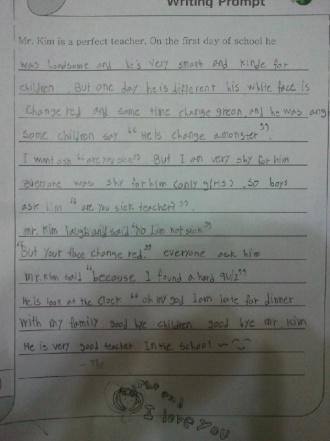 Writing Prompt
Mr. Kim is a perfect teacher. On the first day of school he
was handsome and he's very smart and kinde for
children. But one day he is different his white face is
change red and some time change green, and he was ang
some children say "He is change a monster".
I want ask "are you sick". But I am very shy for him
everyone was shy for him (only girls). so boys
ask him "are you sick teacher?".
mr. Kim laugh and said "no I im not sick"
"But your face change red." everyone ask him
mr. Kim said "because I found a hard quiz"
He is look at the clock "oh my god I am late for dinner
with my family good bye children good bye mr kim
He is very good teacher In the school ~
and
I love you